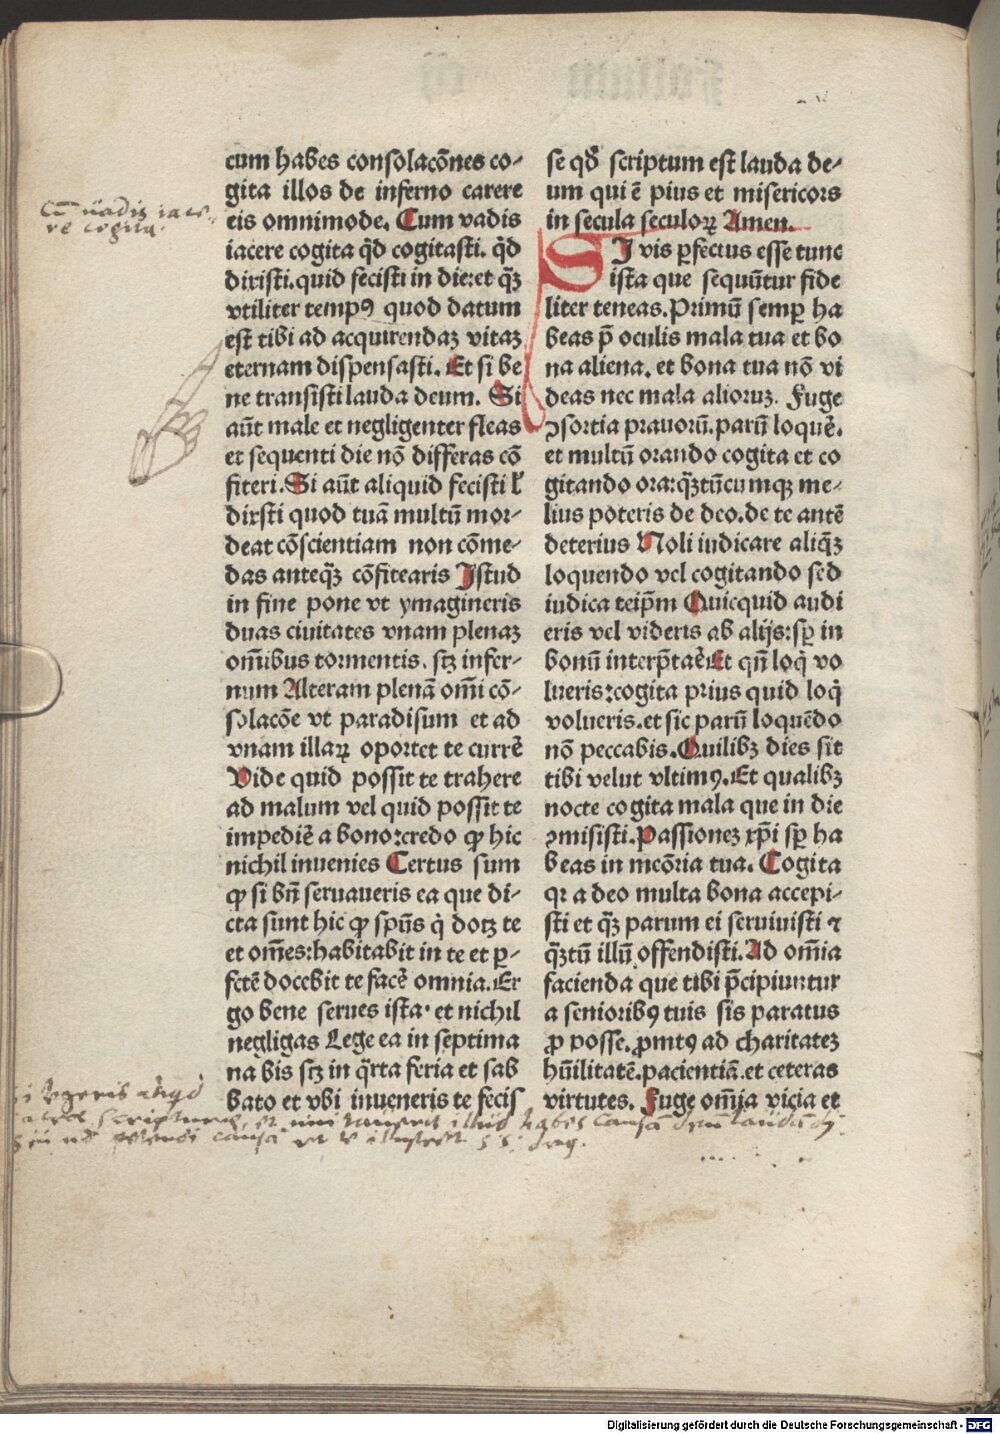 cum habes consolacōnes co⸗
gita illos de inferno carere
eis omnimode. Cum vadis
iacere cogita qđ cogitasti. qđ
dixisti. quid fecisti in die: et q̄ꝫ
vtiliter tempꝰ quod datum
est tibi ad acquirendaꝫ vitaꝫ
eternam dispensasti. Et si be
ne transisti lauda deum. Si
aūt male et negligenter fleas
et sequenti die nō differas cō
fiteri. Si aūt aliquid fecisti ł
dixsti quod tuā multū mor⸗
deat cōscientiam non cōme⸗
das anteq̄ꝫ cōfitearis Istud
in fine pone vt ymagineris
duas ciuitates vnam plenaꝫ
om̄ibus tormentis. sꝫ infer⸗
num Alteram plenā om̄i cō⸗
solacōe vt paradisum et ad
vnam illaꝝ oportet te currē
Vide quid possit te trahere
ad malum vel quid possit te
impediē a bono: credo ꝙ hic
nichil inuenies Certus sum
ꝙ si bn̄ seruaueris ea que di⸗
cta sunt hic ꝙ spūs q̇ dotꝫ te
et om̄es: habitabit in te et p̲⸗
fctē docebit te facē omnia. Er
go bene serues ista· et nichil
negligas Lege ea in septima
na bis sꝫ in q̄rta feria et sab
bato et vbi inueneris te fecis
se qđ scriptum est lauda de⸗
um qui ē pius et misericors
in secula seculoꝝ Amen.
SI vis ꝑfectus esse tunc
ista que sequūtur fide
liter teneas. Primū semꝑ ha
beas p̄ oculis mala tua et bo
na aliena. et bona tua nō vi
deas nec mala alioruꝫ. Fuge
ꝯsortia prauorū. parū loquē.
et multū orando cogita et co
gitando ora: q̄ꝫtūcumqꝫ me⸗
lius poteris de deo. de te antē
deterius Noli iudicare aliq̄ꝫ
loquendo vel cogitando sed
iudica teip̄m Quicquid audi
eris vel videris ab alijs: sꝑ in
bonū interp̄taē Et qn̄ loq̇ vo
lueris: cogita prius quid loq̇
volueris. et sic parū loquēdo
nō peccabis. Quilibꝫ dies sit
tibi velut vltimꝰ. Et qualibꝫ
nocte cogita mala que in die
ꝯmisisti. Passioneꝫ xp̄i sꝑ ha
beas in meōria tua. Cogita
qꝛ a deo multa bona accepi⸗
sti et q̄ꝫ parum ei seruiuisti ⁊
q̄ꝫtū illū offendisti. Ad om̄ia
facienda que tibi p̄cipiuntur
a senioribꝰ tuis sis paratus
ꝓ posse. ꝓmtꝰ ad charitateꝫ
hūilitatē. pacientiā. et ceteras
virtutes. Fuge om̄ia vicia et
Cū uadis iace⸗
re cogita.
Digitalisierung gefördert durch die Deutsche Forschungsgemeinschaft - DFG